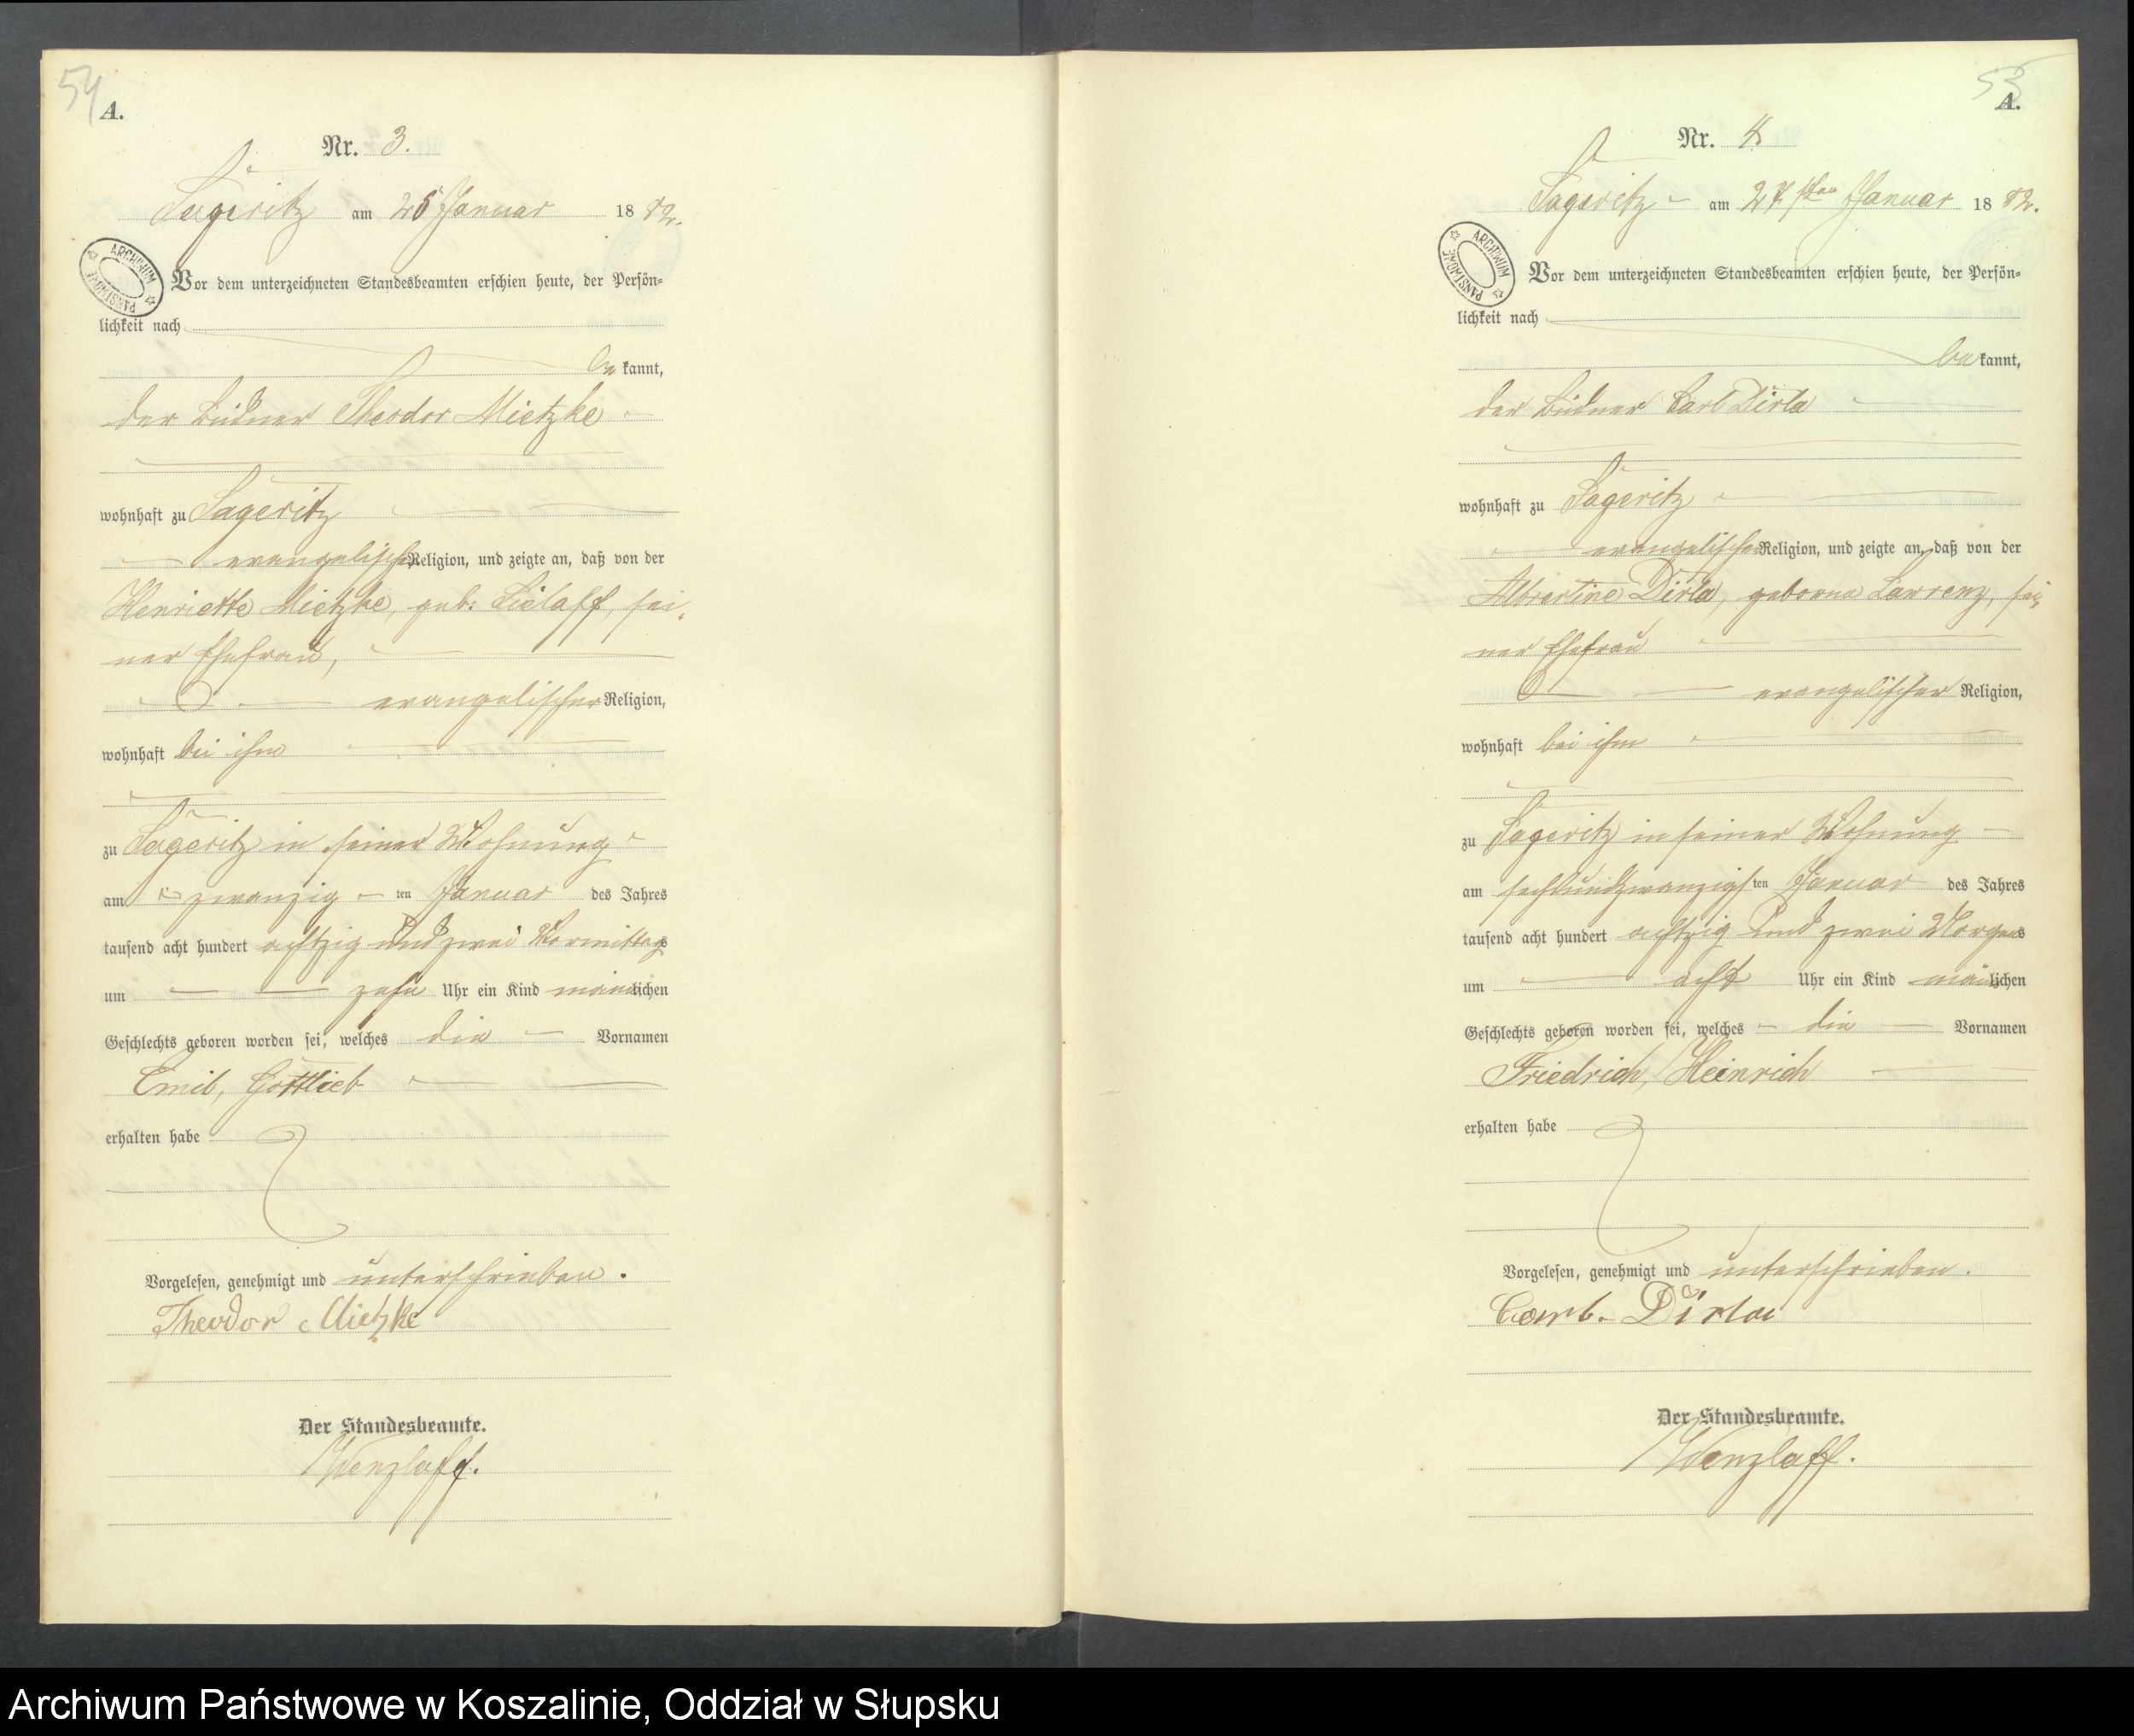 54
A.
Nr. 3.
Sageritz am 25 Januar 1882.
ARCHIWUM PAŃSTWOWE
Vor dem unterzeichneten Standesbeamten erschien heute, der Persön-
lichkeit nach
bekannt,
der Büdner Theodor Mietzke
wohnhaft zu Sageritz
evangelischer Religion, und zeigte an, daß von der
Henriette Mietzke, geb: Lielaff, sei-
ner Ehefrau,
evangelischer Religion,
wohnhaft bei ihm
zu Sageritz in seiner Wohnung
am zwanzigten Januar des Jahres
tausend acht hundert achtzig und zwei Vormittags
um zehn Uhr ein Kind männlichen
Geschlechts geboren worden sei, welches die Vornamen
Emil, Gottlieb
erhalten habe
Vorgelesen, genehmigt und unterschrieben.
Theodor Mietzke
Der Standesbeamte.
Wenzlaff.
53
A.
Nr. 4
Sageritz am 27sten Januar 1882.
ARCHIWUM PAŃSTWOWE
Vor dem unterzeichneten Standesbeamten erschien heute, der Persön-
lichkeit nach
bekannt,
der Büdner Carl Dirla
wohnhaft zu Sageritz
evangelischer Religion, und zeigte an, daß von der
Albertine Dirla, geborne Lawrenz, sei-
ner Ehefrau
evangelischer Religion,
wohnhaft bei ihm
zu Sageritz in seiner Wohnung
am sechsundzwanzigsten Januar des Jahres
tausend acht hundert achtzig und zwei Morgens
um acht Uhr ein Kind männlichen
Geschlechts geboren worden sei, welches die Vornamen
Friedrich, Heinrich
erhalten habe
Vorgelesen, genehmigt und unterschrieben.
Carl Dirla
Der Standesbeamte.
Wenzlaff.
Archiwum Państwowe w Koszalinie, Oddział w Słupsku